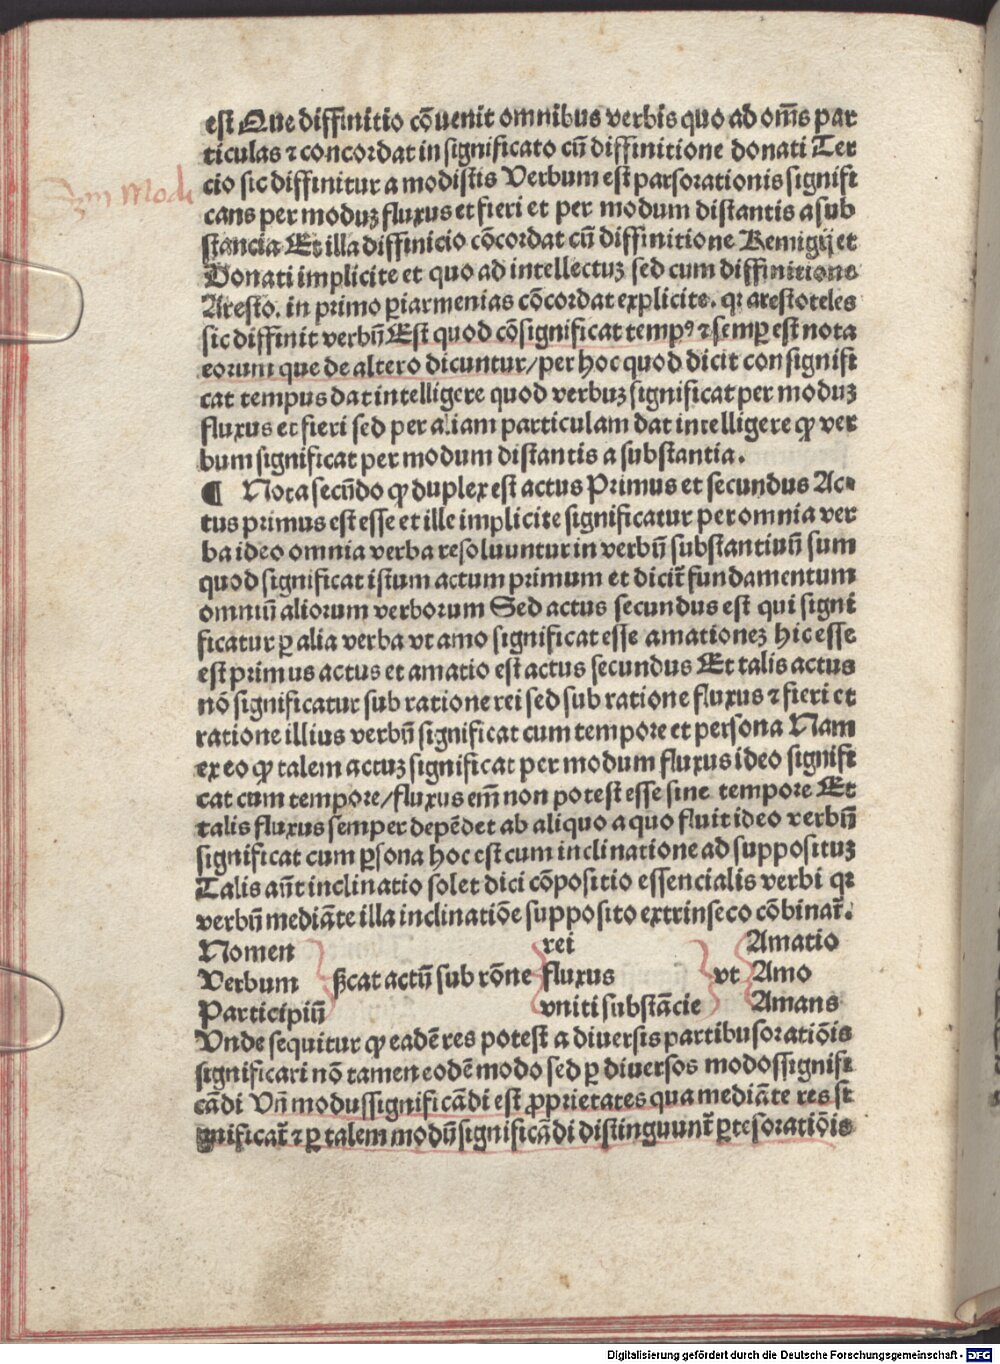 est Que diffinitio cōuenit omnibus verbis quo ad om̄s par
ticulas ⁊ concordat in significato cū diffinitione donati Ter
cio sic diffinitur a modistis Verbum est pars orationis signifi
cans per moduꝫ fluxus et fieri et per modum distantis a sub
stancia Et illa diffinicio cōcordat cū diffinitione Remigij et
Donati implicite et quo ad intellectuꝫ sed cum diffinitione
Aresto. in primo ꝑiarmenias cōcordat explicite. qꝛ arestoteles
sic diffinit verbū Est quod cōsignificat tempꝰ ⁊ semꝑ est nota
eorum que de altero dicuntur/per hoc quod dicit consignifi
cat tempus dat intelligere quod verbuꝫ significat per moduꝫ
fluxus et fieri sed per aliam particulam dat intelligere ꝙ ver
bum significat per modum distantis a substantia.
¶ Nota secūdo ꝙ duplex est actus Primus et secundus Ac-
tus primus est esse et ille implicite significatur per omnia ver
ba ideo omnia verba resoluuntur in verbū substantiuū sum
quod significat istum actum primum et dicit̄ fundamentum
omniū aliorum verborum Sed actus secundus est qui signi
ficatur ꝑ alia verba vt amo significat esse amationeꝫ hic esse
est primus actus et amatio est actus secundus Et talis actus
nō significatur sub ratione rei sed sub ratione fluxus ⁊ fieri et
ratione illius verbū significat cum tempore et persona Nam
ex eo ꝙ talem actuꝫ significat per modum fluxus ideo signifi
cat cum tempore/fluxus em̄ non potest esse sine tempore Et
talis fluxus semper depēdet ab aliquo a quo fluit ideo verbū
significat cum ꝑsona hoc est cum inclinatione ad supposituꝫ
Talis aūt inclinatio solet dici cōpositio essencialis verbi qꝛ
verbū mediāte illa inclinatiōe supposito extrinseco cōbinat̄.
Nomen rei Amatio
Verbum ꝟcat actū sub rōne fluxus vt Amo
Participiū vniti substācie Amans
Vnde sequitur ꝙ eadē res potest a diuersis partibus oratiōis
significari nō tamen eodē modo sed ꝑ diuersos modos signifi
cādi Vn̄ modus significādi est ꝓprietates qua mediāte res si
gnificat̄ ⁊ ꝑ talem modū significādi distinguunt̄ ꝑtes oratiōis
Digitalisierung gefördert durch die Deutsche Forschungsgemeinschaft - DFG